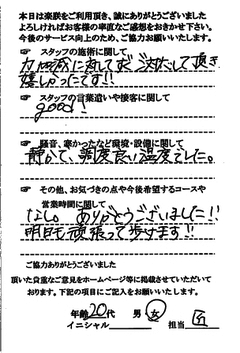 本日は楽咲をご利用頂き、誠にありがとうございました
よろしければお客様の率直なご感想をおきかせ下さい。
今後のサービス向上のため、ご協力お願いいたします。
☞ スタッフの施術に関して
力加減に対してすごく対応して頂き
嬉しかったです!!
☞ スタッフの言葉遣いや接客に関して
good!
☞ 騒音、寒かったなど環境・設備に関して
静かで、調度良い温度でした。
☞ その他、お気づきの点や今後希望するコースや
営業時間に関して
なし ありがとうございました!!
明日も頑張って歩けます!!
ご協力ありがとうございました
頂いた貴重なご意見をホームページ等に掲載させていただいて
おります。下記の項目にご記入をお願いいたします。
年齢 20代 男 女
イニシャル 担当